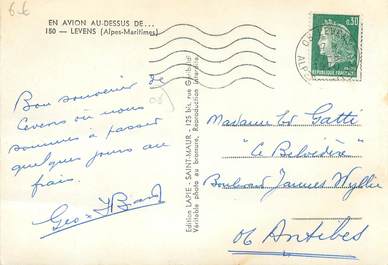 6€
EN AVION AU-DESSUS DE...
180 — LEVENS (Alpes-Maritimes)
Bon souvenir de
Levens où nous
sommes à passer
quelques jours au
frais.
Edition LAPIE - SAINT-MAUR - 125 bis, rue Garibaldi
Véritable photo au bromure, Reproduction interdite
0,30
REPUBLIQUE FRANCAISE
LEVENS
Madame Lor Gatti
"Le Belvédère"
Boulevard James Wyllie
06 Antibes